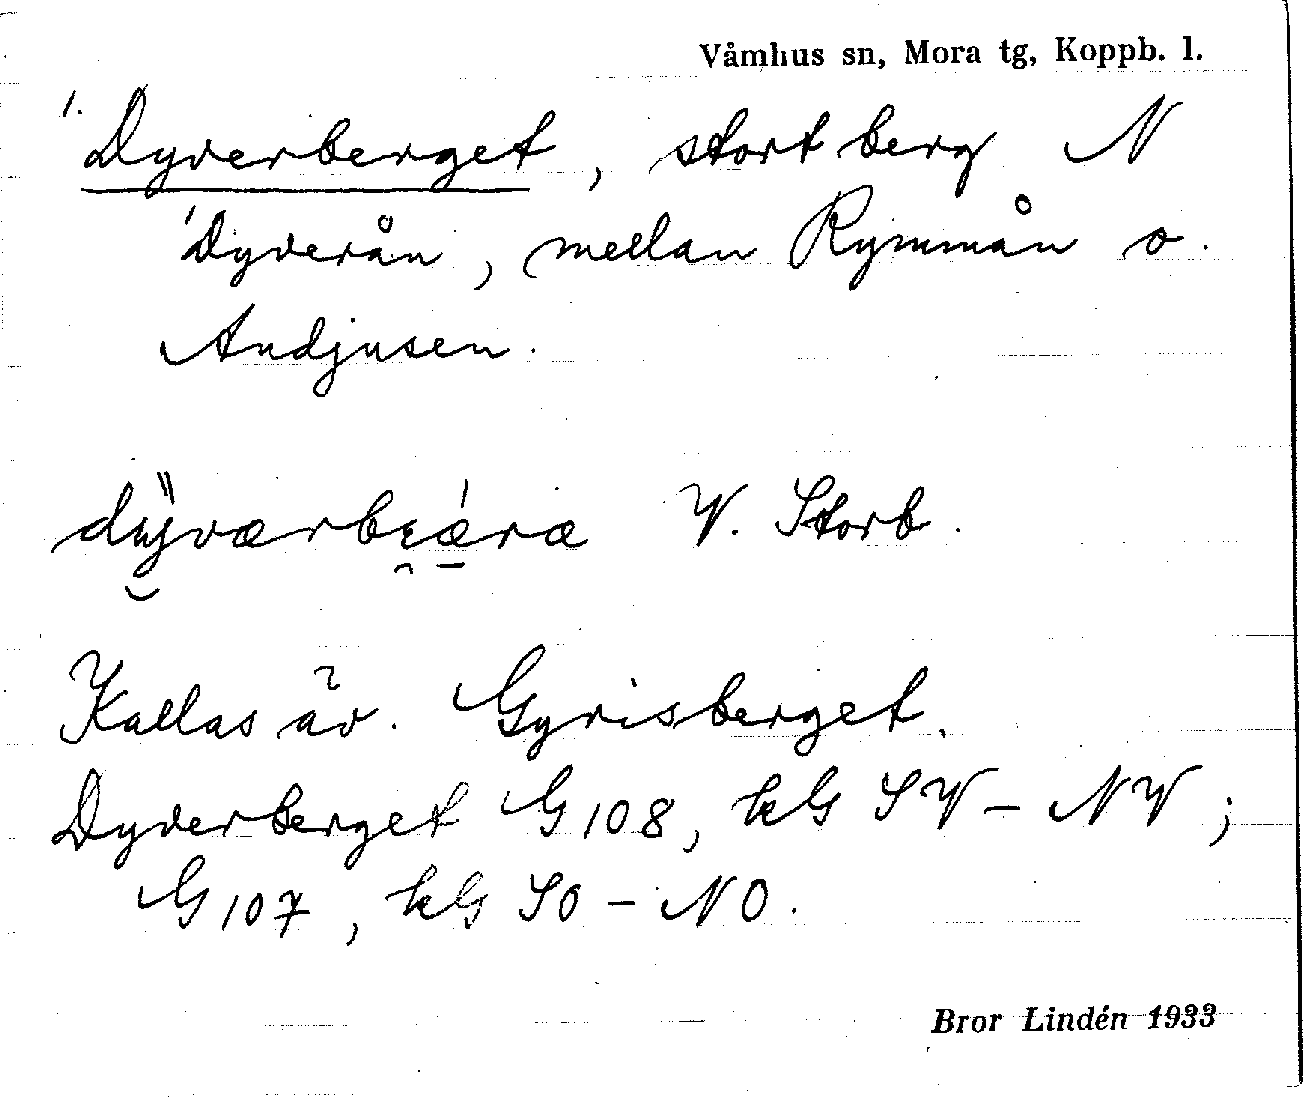 Våmhus sn, Mora tg, Koppb. l.
1. Dyverberget, stort berg N
Dyverån, mellan Rymmån o.
Andjusen.
V. Storb.
Kallas äv. Gyrisberget.
Dyverberget G108, hkG SV–NV;
G107, hkG SO–NO.
Bror Lindén 1933